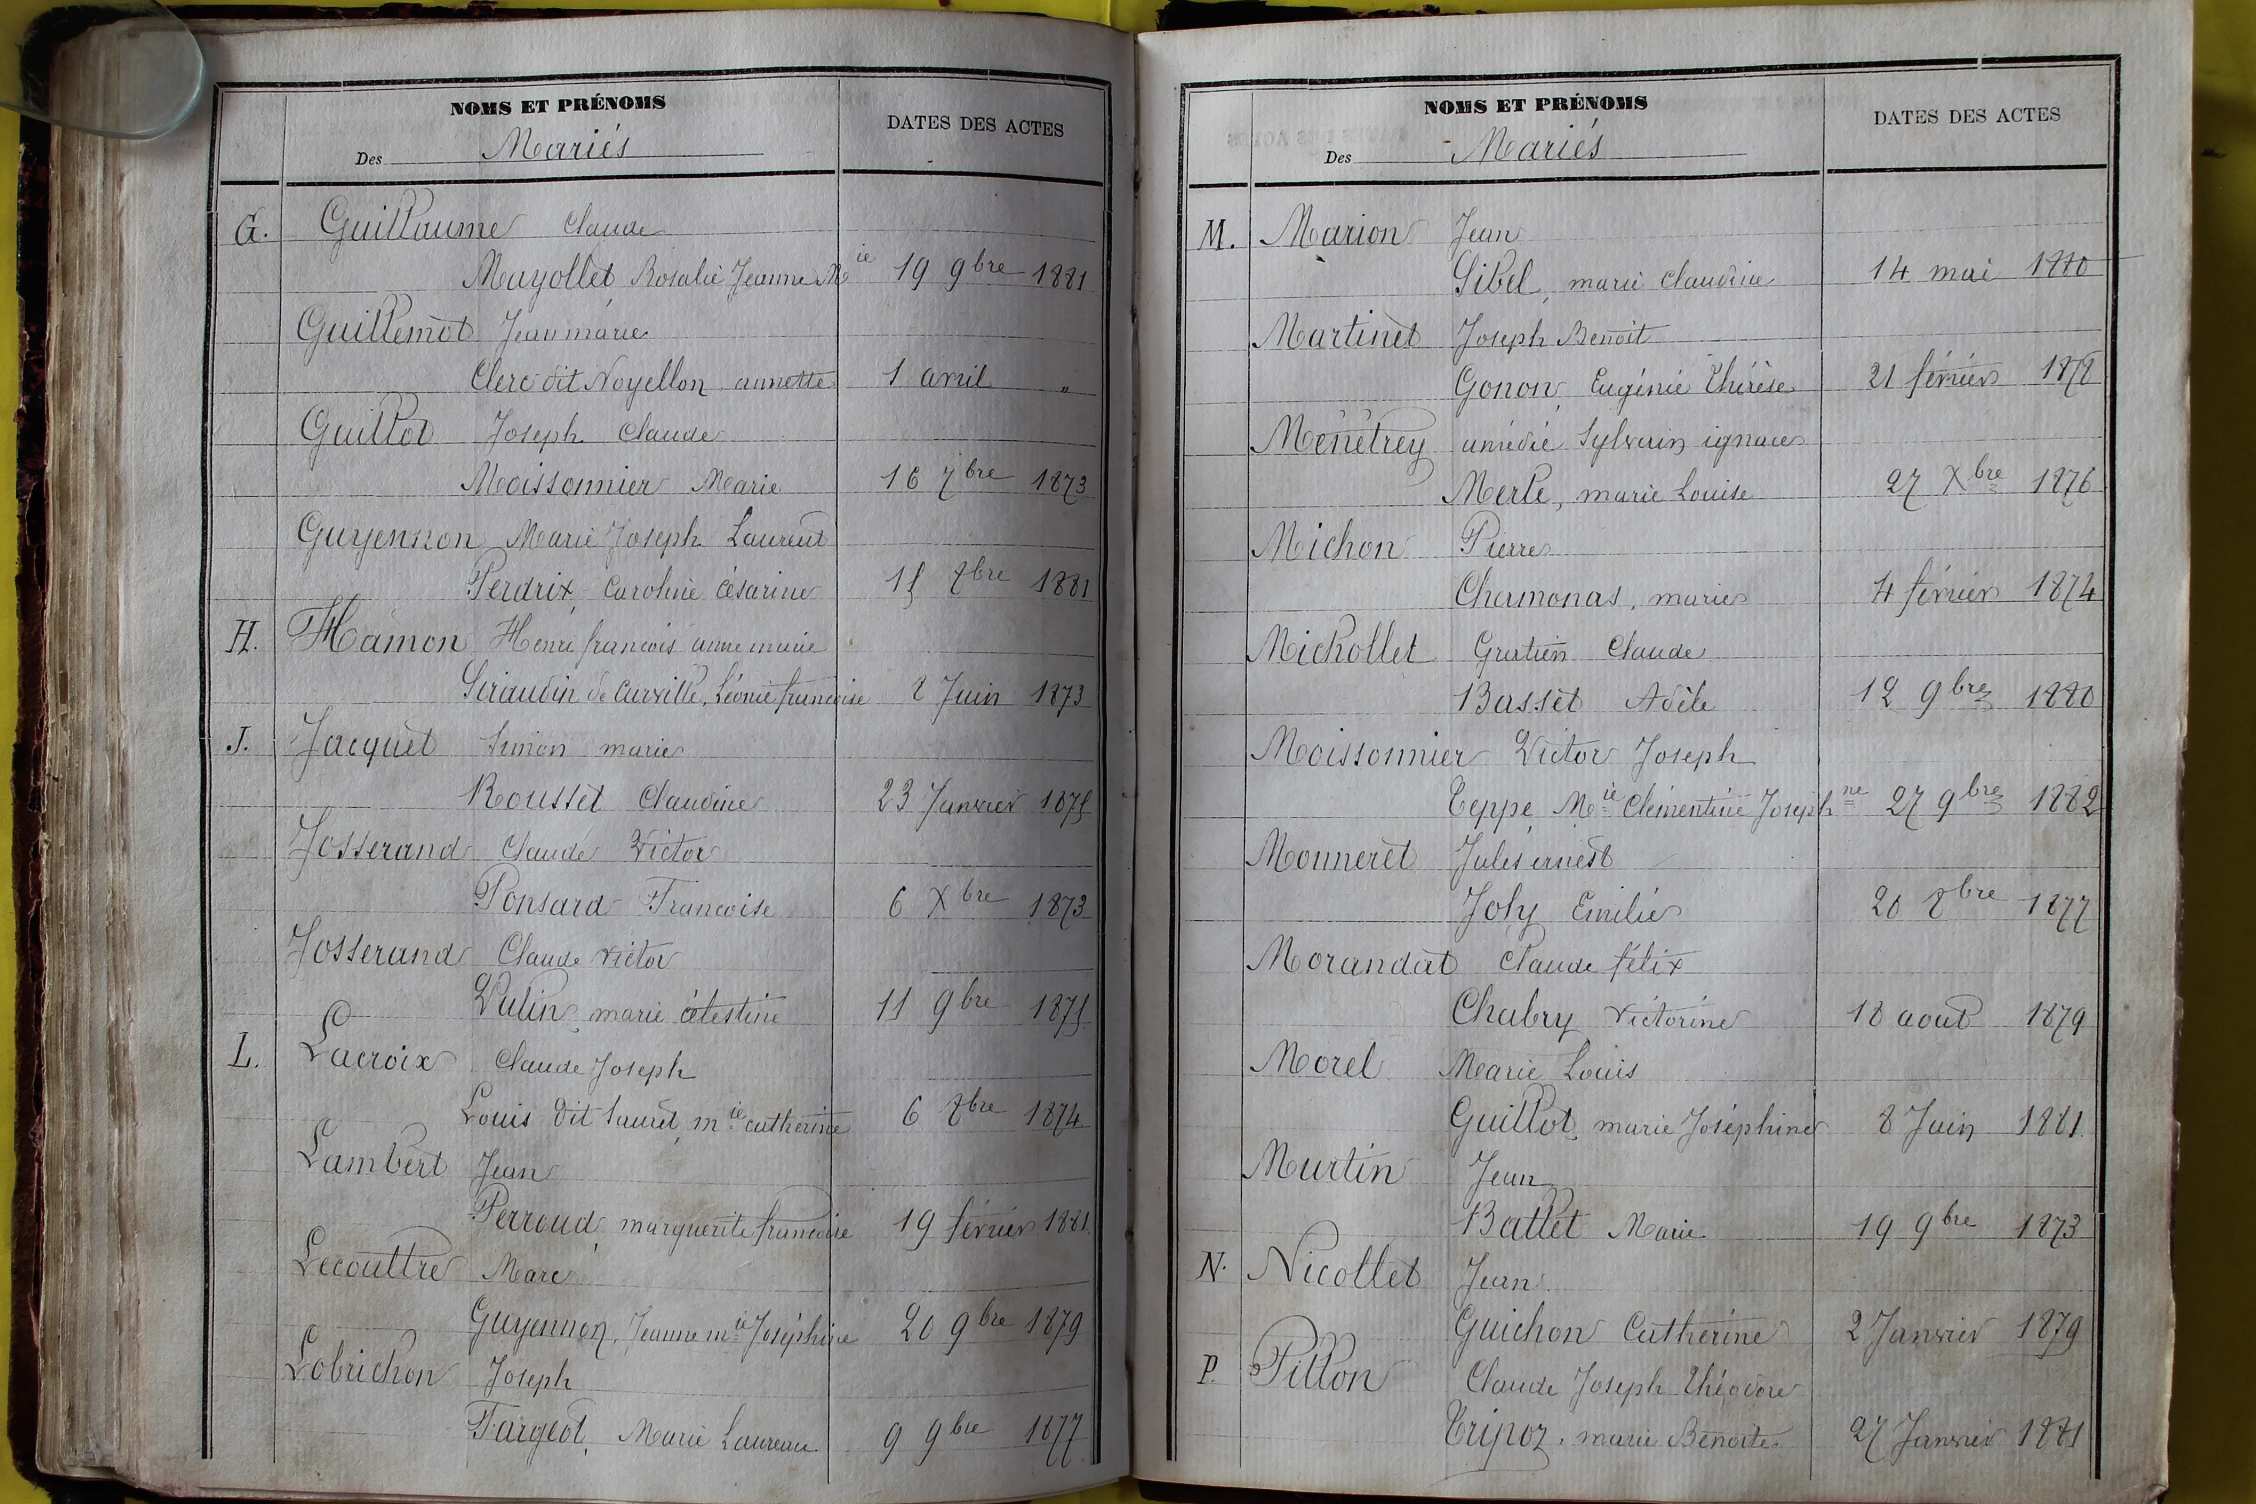 NOMS ET PRÉNOMS
DATES DES ACTES
Des Mariés
G. Guillaume Claude
Mayollet Rosalie Jeanne Mie 19 9bre 1881
Guillemot Jean marie
Clerc dit Noyellon annette 1 avril "
Guillot Joseph Claude
Moissonnier Marie 16 7bre 1873
Guyennon Marie Joseph Laurent
Perdrix, Caroline Césarine 15 8bre 1881
H. Hamon Henri francois anne marie
Siraudin de Curville, Léonie francoise 8 Juin 1873
J. Jacquet Simon marie
Rousset Claudine 23 Janvier 1875
Josserand Claude Victor
Ponsard Francoise 6 Xbre 1873
Josserand Claude victor
Vulin, marie célestine 11 9bre 1875
L. Lacroix Claude Joseph
Louis dit Sauret, mie catherine 6 8bre 1874
Lambert Jean
Perroud, marguerite francoise 19 février 1881
Lecouttre Marc
Guyennon, Jeanne mie Joséphine 20 9bre 1879
Lobrichon Joseph
Fargeot, Marie Laureau 9 9bre 1877
NOMS ET PRÉNOMS
DATES DES ACTES
Des Mariés
M. Marion Jean
Sibel, marie Claudine 14 mai 1880
Martinet Joseph Benoit
Gonon, Eugénie Thérèse 21 février 1878
Ménétrey amédée Sylvain ignace
Merle, marie Louise 27 Xbre 1876
Michon Pierre
Chamonas, marie 4 février 1874
Michollet Gratien Claude
Basset Adèle 12 9bre 1880
Moissonnier Victor Joseph
Teppe Mie Clémentine Josephne 27 9bre 1882
Monneret Jules ernest
Joly Emilie 20 8bre 1877
Morandat Claude félix
Chabry victorine 18 aout 1879
Morel Marie Louis
Guillot, marie Joséphine 8 Juin 1881
Murtin Jean
Ballet Marie 19 9bre 1873
N. Nicollet Jean
Guichon Catherine 2 Janvier 1879
P. Pillon Claude Joseph Théodore
Tripoz, marie Benoite 27 Janvier 1881